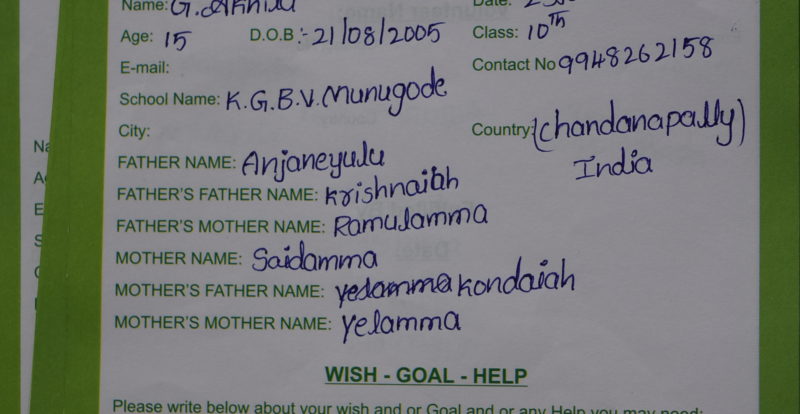 Name: G. Akhila Date:
Age: 15 D.O.B :- 21/08/2005 Class: 10th
E-mail: Contact No 9948262158
School Name: K.G.B.V. Munugode
City: Country (Chandanapally)
India
FATHER NAME: Anjaneyulu
FATHER'S FATHER NAME: Krishnaiah
FATHER'S MOTHER NAME: Ramulamma
MOTHER NAME: Saidamma
MOTHER'S FATHER NAME: yelamma Kondaiah
MOTHER'S MOTHER NAME: Yelamma
WISH - GOAL - HELP
Please write below about your wish and or Goal and or any Help you may need: